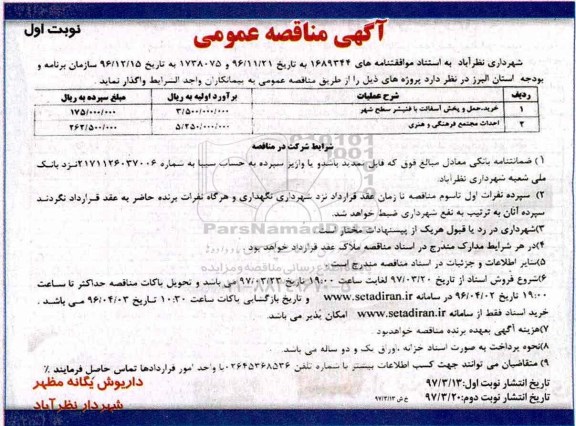 آگهی مناقصه عمومی
نوبت اول
شهرداری نظرآباد به استناد موافقتنامه های ۱۶۸۹۳۴۴ به تاریخ ۹۶/۱۱/۲۱ و ۱۷۳۸۰۷۵ به تاریخ ۹۶/۱۲/۱۵ سازمان برنامه و
بودجه استان البرز در نظر دارد پروژه های ذیل را از طریق مناقصه عمومی به پیمانکاران واجد الشرایط واگذار نماید.
ردیف شرح عملیات برآورد اولیه به ریال مبلغ سپرده به ریال
۱ خرید،حمل و پخش آسفالت با فنیشر سطح شهر ۳/۵۰۰/۰۰۰/۰۰۰ ۱۷۵/۰۰۰/۰۰۰
۲ احداث مجتمع فرهنگی و هنری ۵/۲۵۰/۰۰۰/۰۰۰ ۲۶۲/۵۰۰/۰۰۰
شرایط شرکت در مناقصه
۱) ضمانتنامه بانکی معادل مبالغ فوق که قابل تمدید باشد و یا واریز سپرده به حساب سیبا به شماره ۲۱۷۱۱۲۶۰۳۷۰۰۶ نزد بانک
ملی شعبه شهرداری نظرآباد.
۲) سپرده نفرات اول تا سوم مناقصه تا زمان عقد قرارداد نزد شهرداری نگهداری و هرگاه نفرات برنده حاضر به عقد قرارداد نگردند
سپرده آنان به ترتیب به نفع شهرداری ضبط خواهد شد.
۳)شهرداری در رد یا قبول هریک از پیشنهادات مختار است.
۴)در هر شرایط مدارک مندرج در اسناد مناقصه ملاک عقد قرارداد خواهد بود.
۵)سایر اطلاعات و جزئیات در اسناد مناقصه مندرج است.
۶)شروع فروش اسناد از تاریخ ۹۷/۰۳/۲۰ لغایت ساعت ۱۹:۰۰ تاریخ ۹۷/۰۳/۲۳ می باشد و تحویل پاکات مناقصه حداکثر تا ساعت
۱۹:۰۰ تاریخ ۹۶/۰۴/۰۲ در سامانه www.setadiran.ir و تاریخ بازگشایی پاکات ساعت ۱۰:۳۰ تاریخ ۹۶/۰۴/۰۳ می باشد.
خرید اسناد فقط از سامانه www.setadiran.ir امکان پذیر می باشد.
۷)هزینه آگهی بعهده برنده مناقصه خواهدبود
۸)نحوه پرداخت به صورت اسناد خزانه ،اوراق یک و دو ساله می باشد.
۹) متقاضیان می توانند جهت کسب اطلاعات بیشتر با شماره تلفن ۰۲۶۴۵۳۶۸۵۳۶ با واحد امور قراردادها تماس حاصل فرمایند ٪
تاریخ انتشار نوبت اول:۹۷/۳/۱۳
تاریخ انتشار نوبت دوم:۹۷/۳/۲۰
خ ش ۹۷/۳/۱۳
داریوش یگانه مظهر
شهردار نظرآباد